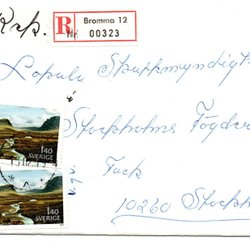 Rek.
R Bromma 12
Nr 00323
Lokala Skattemyndigh
Stockholms Fögder
Fack
10260 Stockh
140
SVERIGE
140
SVERIGE